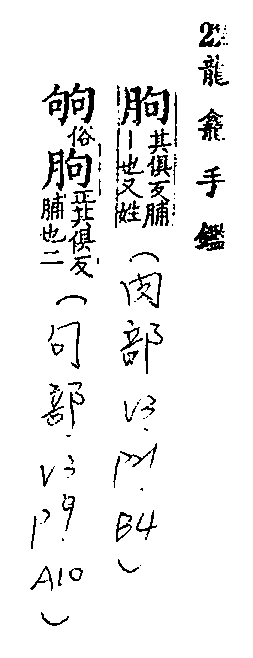 22龍龕手鑑
朐其俱反脯丨也又姓(肉部.V3.P21.B4)
㫬俗朐正其俱反脯也二(句部.V3.P9.A10)